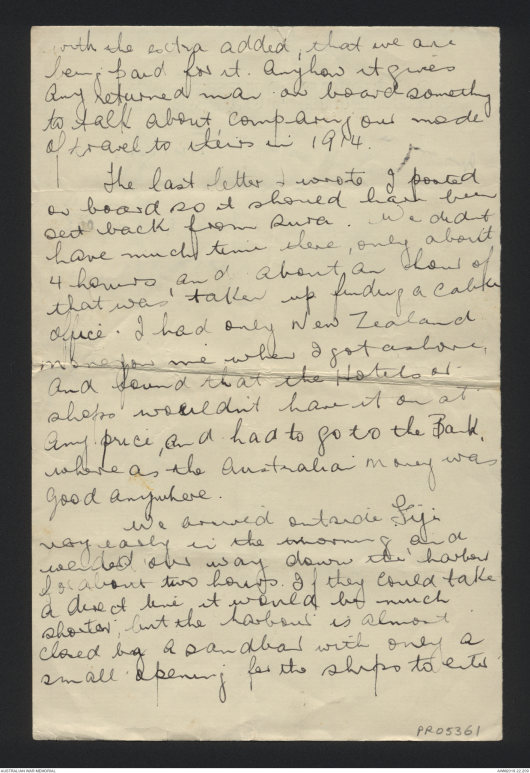 with the extra added, that we are
being paid for it. Anyhow it gives
any returned man on board something
to talk about comparing our mode
of travel to theirs in 1914.
The last letter I wrote I posted
on board so it should have been
sent back from Suva. We didn't
have much time there, only about
4 hours and about an hour of
that was taken up finding a cable
office. I had only New Zealand
money on me when I got ashore,
and found that the Hotels or
shops wouldn't have it on at
any price, and had to go to the Bank,
where as the Australian money was
good anywhere.
We arrived outside Fiji
very early in the morning and
wended our way down the harbor
for about two hours. If they could take
a direct line it would be much
shorter, but the harbour is almost
closed by a sandbar with only a
small opening for the ships to enter
PR05361
AUSTRALIAN WAR MEMORIAL